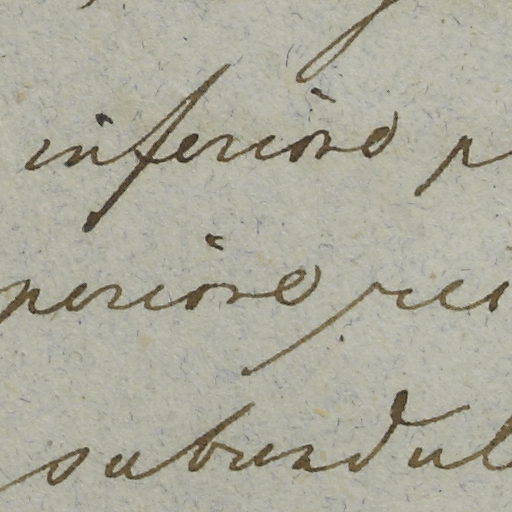 inferiore p
periore rec
subundul